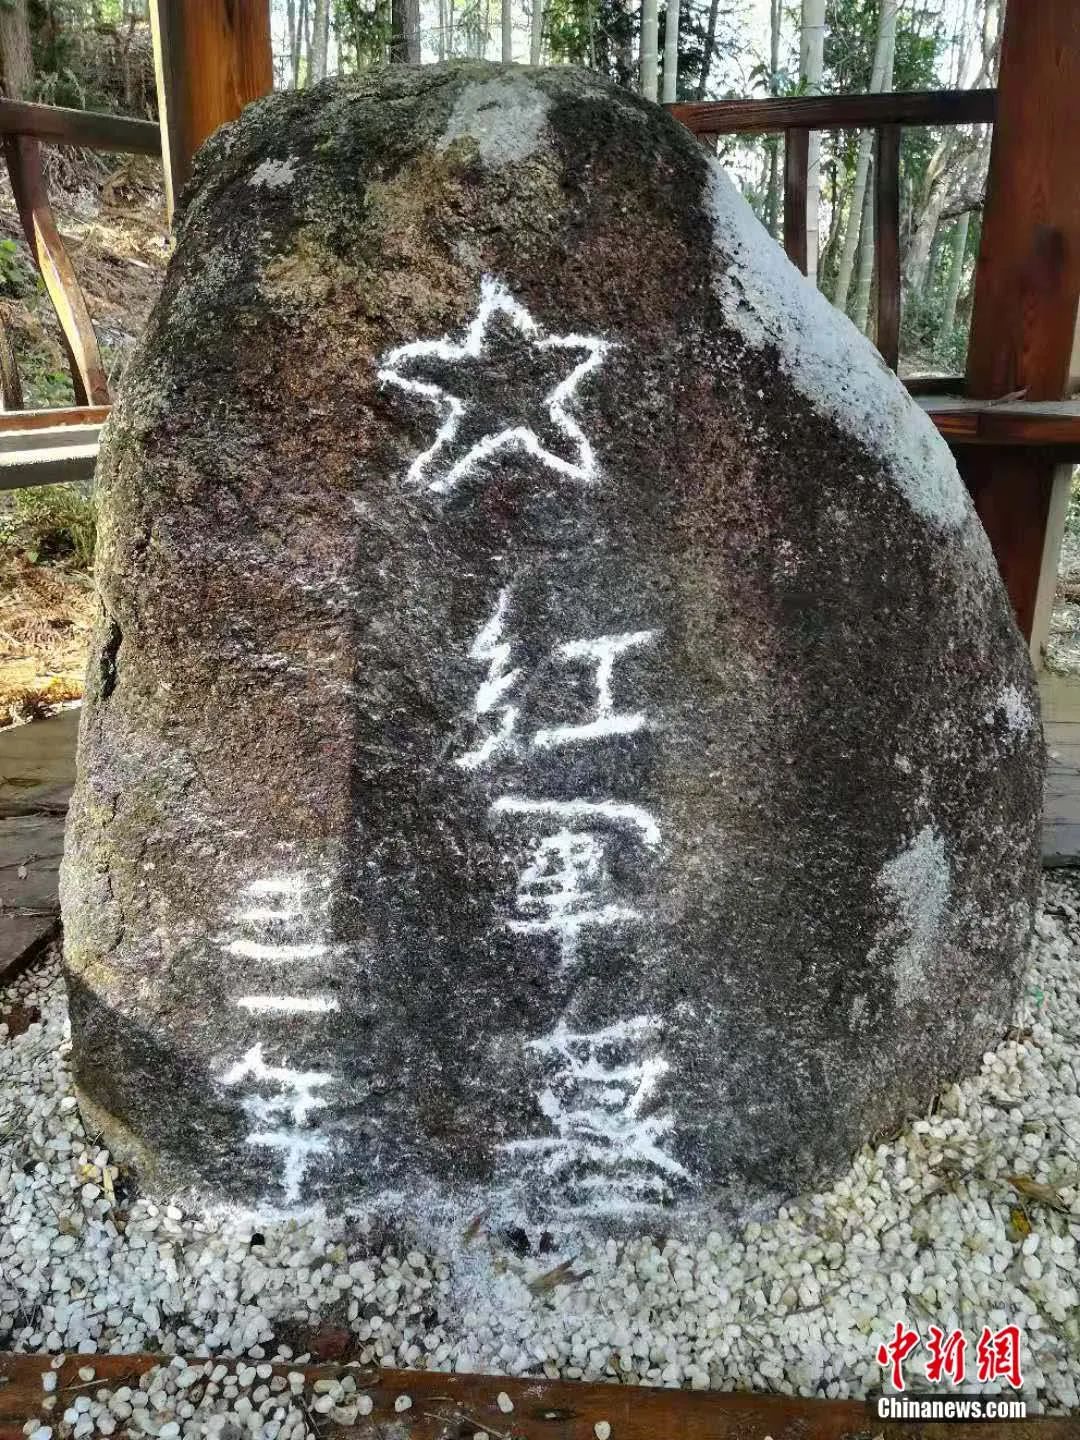 红军墓
三二年
中新网
Chinanews.com